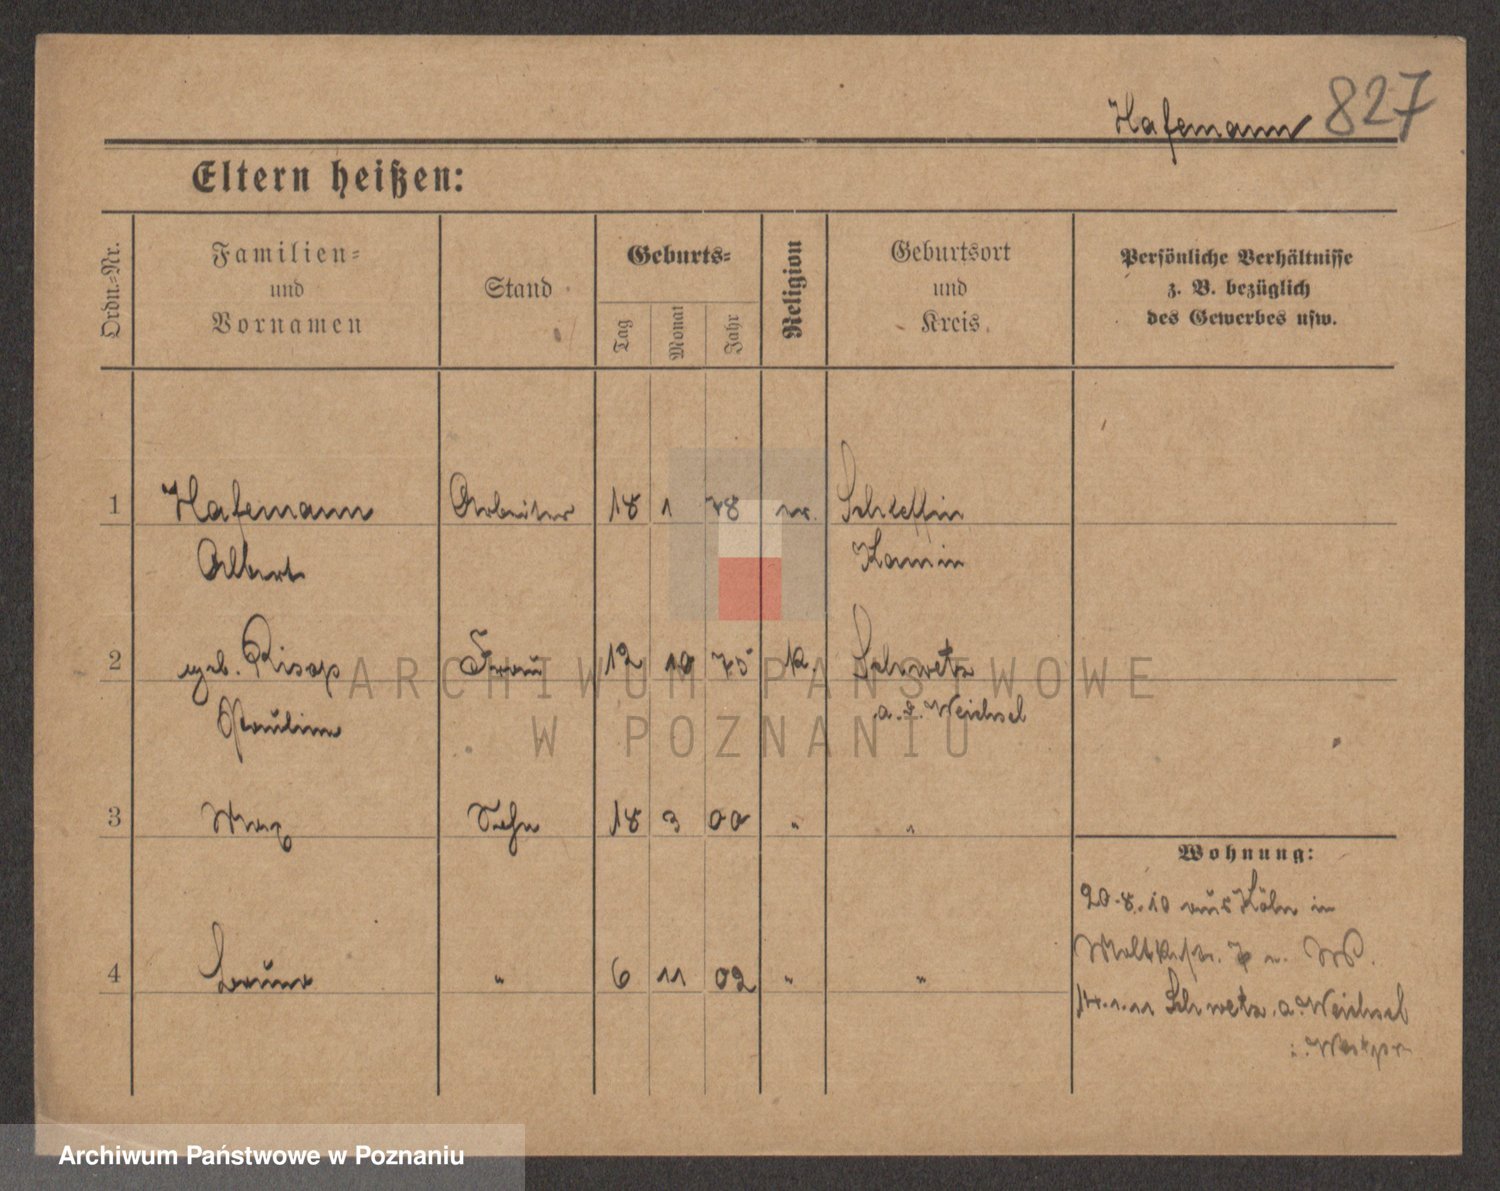 Hafemann 827
Eltern heißen:
Ordn.-Nr.
Familien-
und
Vornamen
Stand
Geburts-
Tag
Monat
Jahr
Religion
Geburtsort
und
Kreis
Persönliche Verhältnisse
z. B. bezüglich
des Gewerbes usw.
1 Hafemann Arbeiter 18 1 78 ev.
Albert Kamin
2 geb. Risop Frau 12 10 75 k. Schwetz
Pauline a. d. Weichsel
3 Max Sohn 18 3 00 " "
4 Bruno " 6 11 02 " "
Wohnung:
20.8.10 aus Köln in
Moltkestr.
14.1.11 Schwetz a. Weichsel
i. Westpr
ARCHIWUM PAŃSTWOWE
W POZNANIU
Archiwum Państwowe w Poznaniu